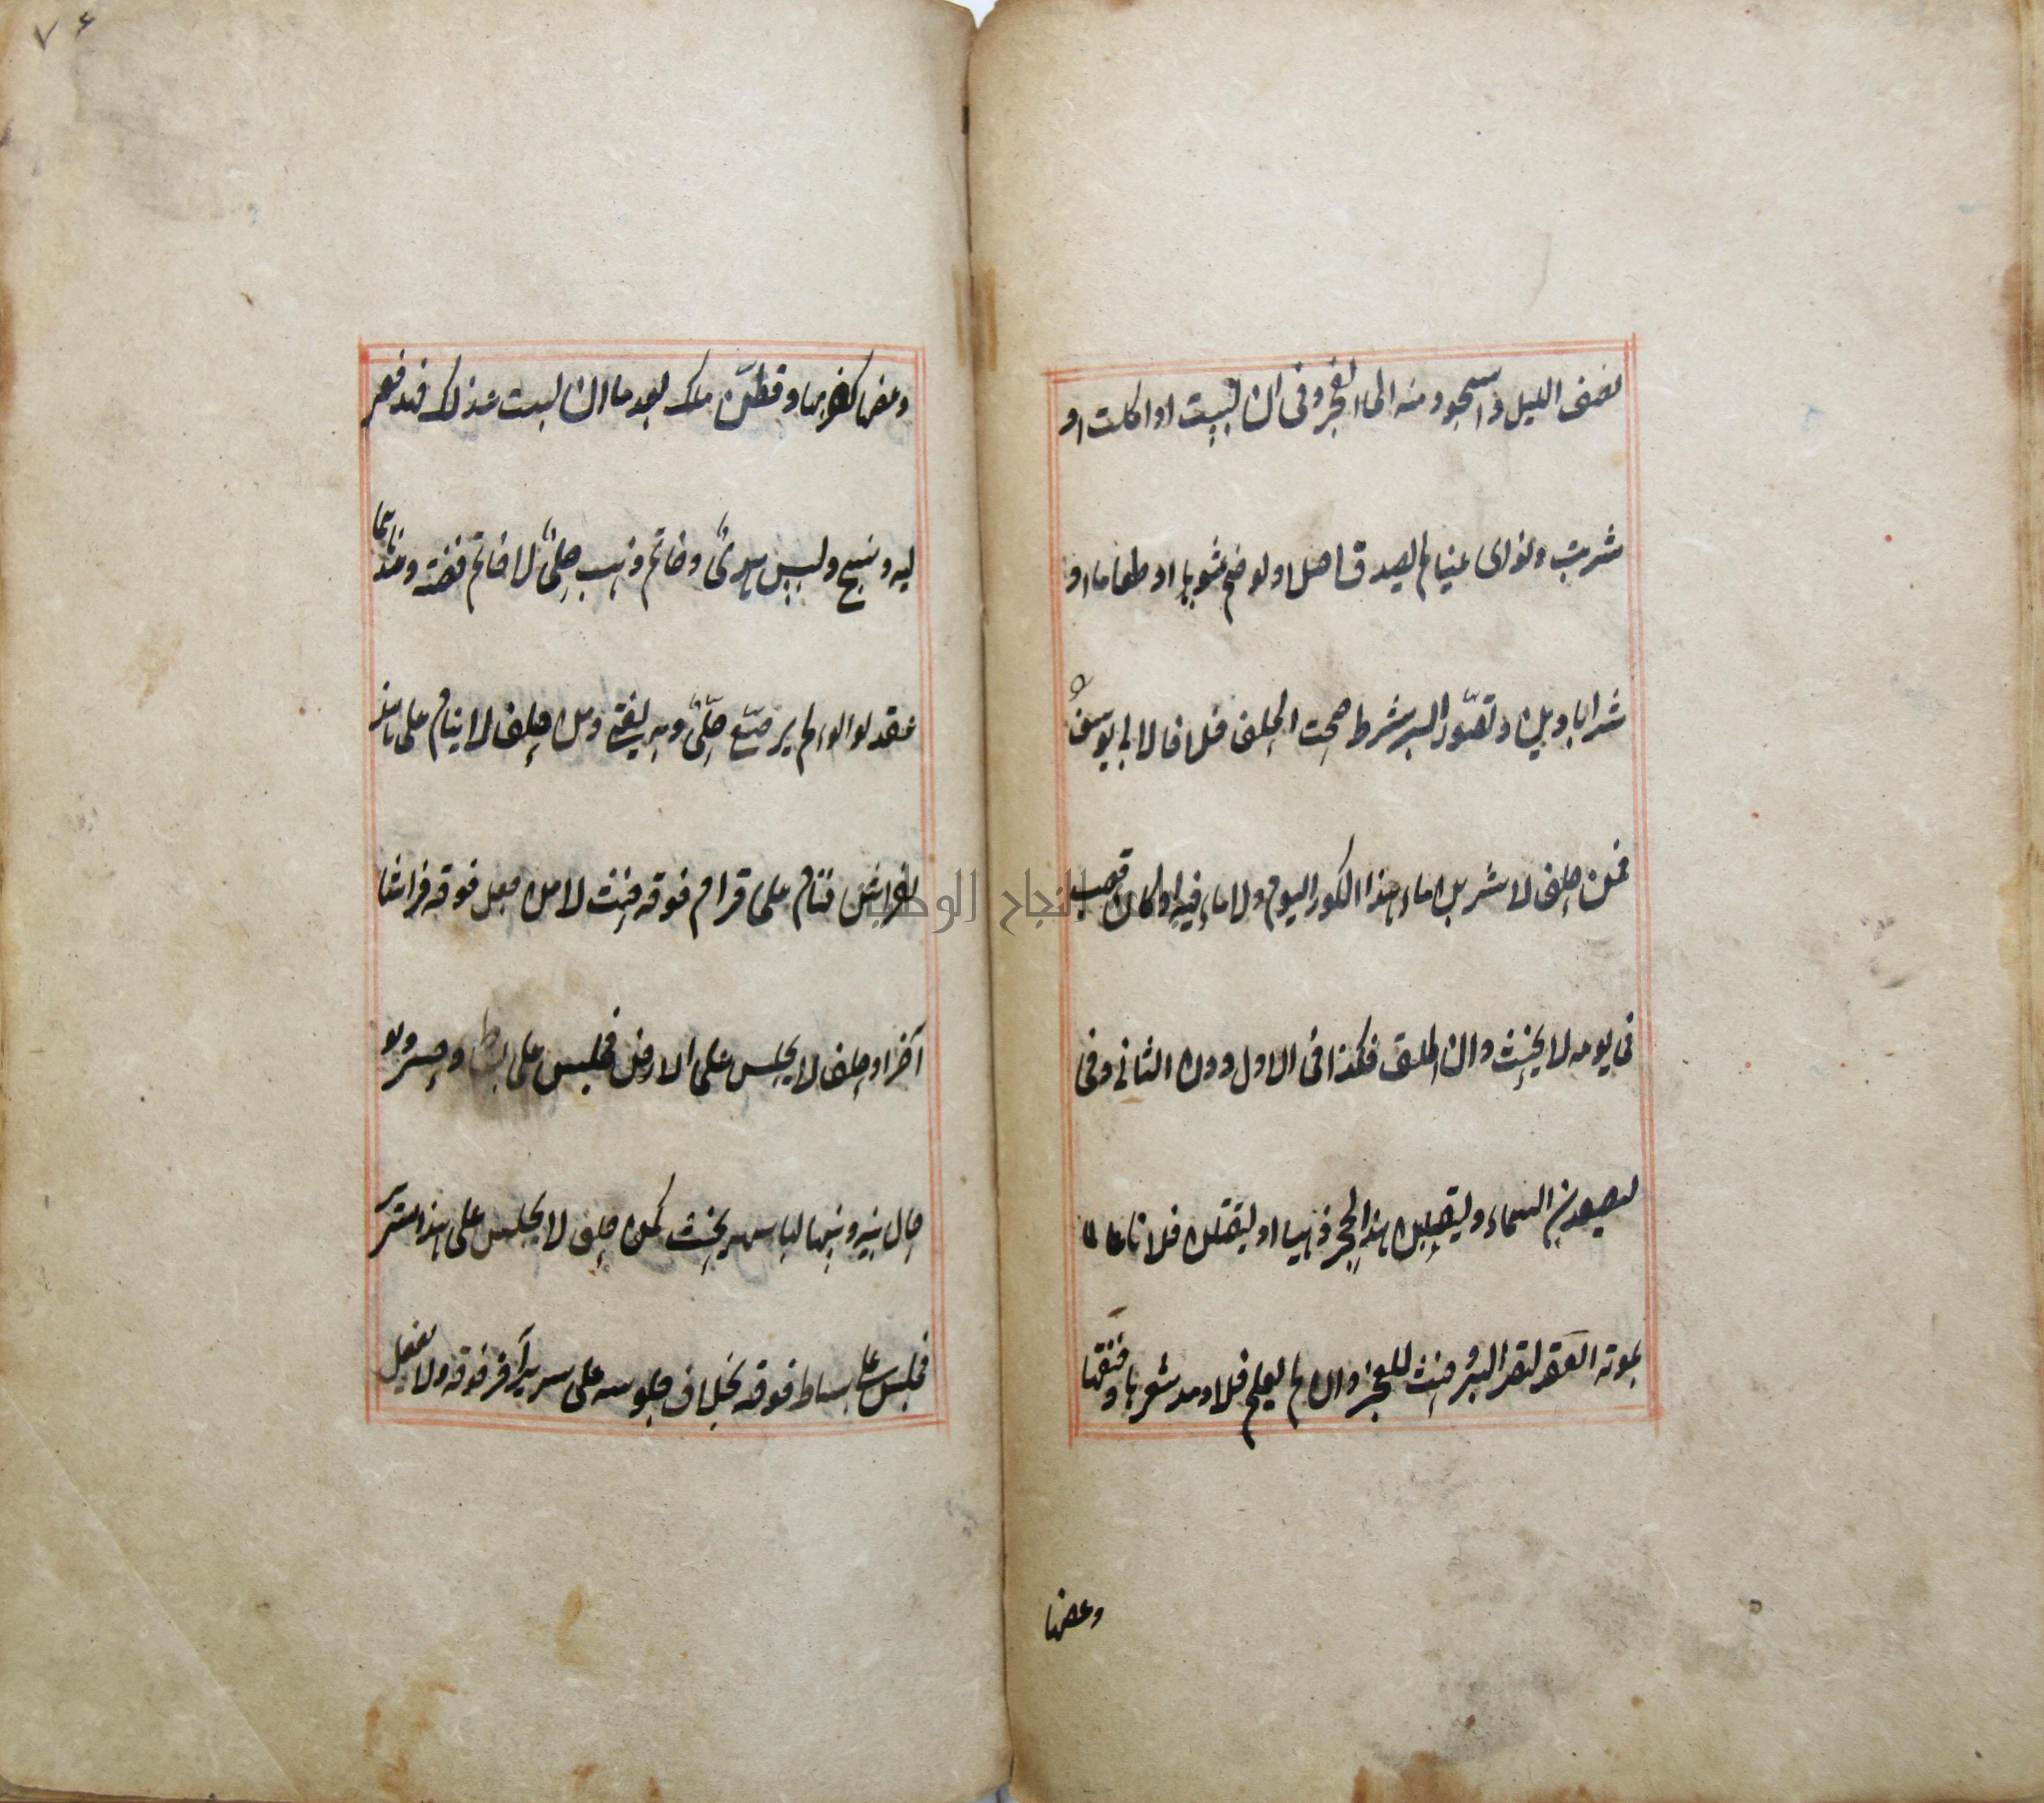 نصف الليل والسحور منه الى الفجر وفى ان لبست او اكلت او
شربت ونوى عينا لم يصدق اصلا ولو ضم ثوبا او طعاما او
شرابا دين وتصور البر شرط صحت الحلف خلافا لابى يوسف
فمن حلف لاشربن ماء هذا الكوز اليوم ولا ماء فيه او كان فصب
فى يومه لا يحنث وان اطلق فكذا فى الاول دون الثانى وفى
ليصعدن السماء وليقلبن هذا الحجر ذهبا او ليقتلن فلانا عالما
بموته انعقد لتصور البر وحنث للعجز وان لم يعلم فلا ومد شعرها وخنقها
وعضها
وعضها كضربها وقطن ملكه بعد ما ان لبست من غزلك فهدى فغزلته
ونسج ولبس هدى وخاتم ذهب حلى لا خاتم فضة وعندهما
عقد لؤلؤ لم يرصع حلى وبه يفتى ومن حلف لا ينام على هذا
الفراش فنام على قرام فوقه حنث لا من جعل فوقه فراشا
آخر او حلف لا يجلس على الارض فجلس على بساط او حصير ولو
حال بينه وبينها لباسه يحنث كمن حلف لا يجلس على هذا السرير
فجلس على بساط فوقه بخلاف جلوسه على سرير آخر فوقه ولا يفعل
٧٤